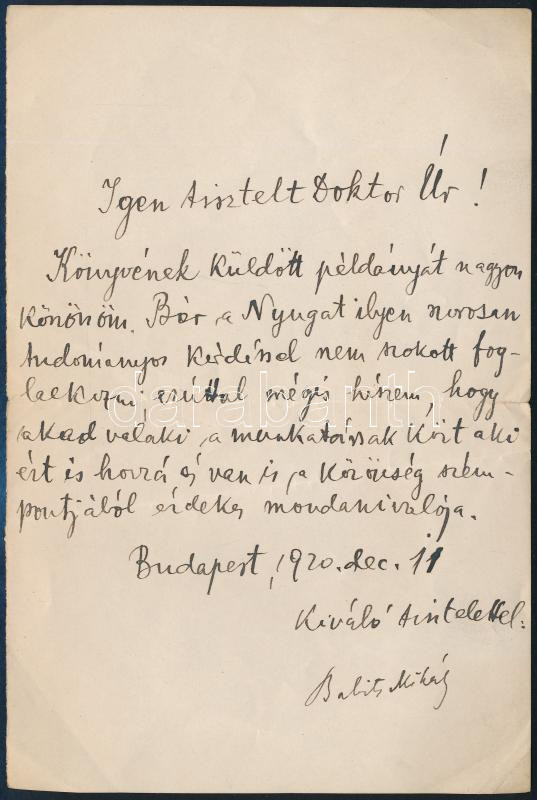 Igen tisztelt Doktor Úr!
Könyvének küldött példányát nagyon
köszönöm. Bár a Nyugat ilyen szorosan
tudományos kérdéssel nem szokott fog-
lalkozni ezúttal mégis hiszem, hogy
akad valaki a munkatársak közt aki
ért is hozzá és van is a közönség szem-
pontjából érdekes mondanivalója.
Budapest, 1920. dec. 11
Kiváló tisztelettel:
Babits Mihály
darabanth